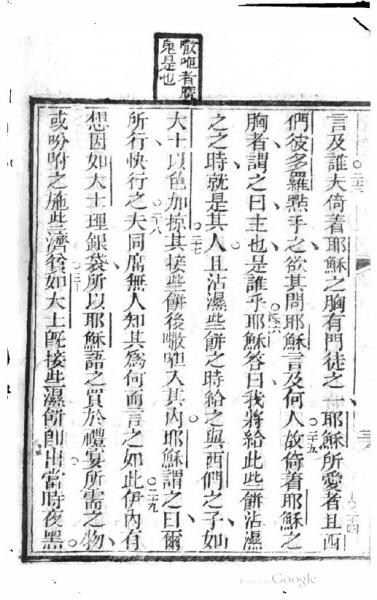 呾者魔
鬼是也
言及誰夫倚着耶穌之胸有門徒之一耶穌所愛者且西
們彼多羅點手之欲其問耶穌言及何人故倚着耶穌之
胸者謂之曰主也是誰乎耶穌答曰我將給此些餅沾濕
之之時就是其人且沾濕些餅之時給之與西們之子如
大士以色加掠其接些餅後呾入其內耶穌謂之曰爾
所行快行之夫同席無人知其為何而言之如此伊內有
想因如大士理銀袋所以耶穌語之買於禮宴所需之物
或吩咐之施些濟貧如大士既接些濕餅即出當時夜黑
Google